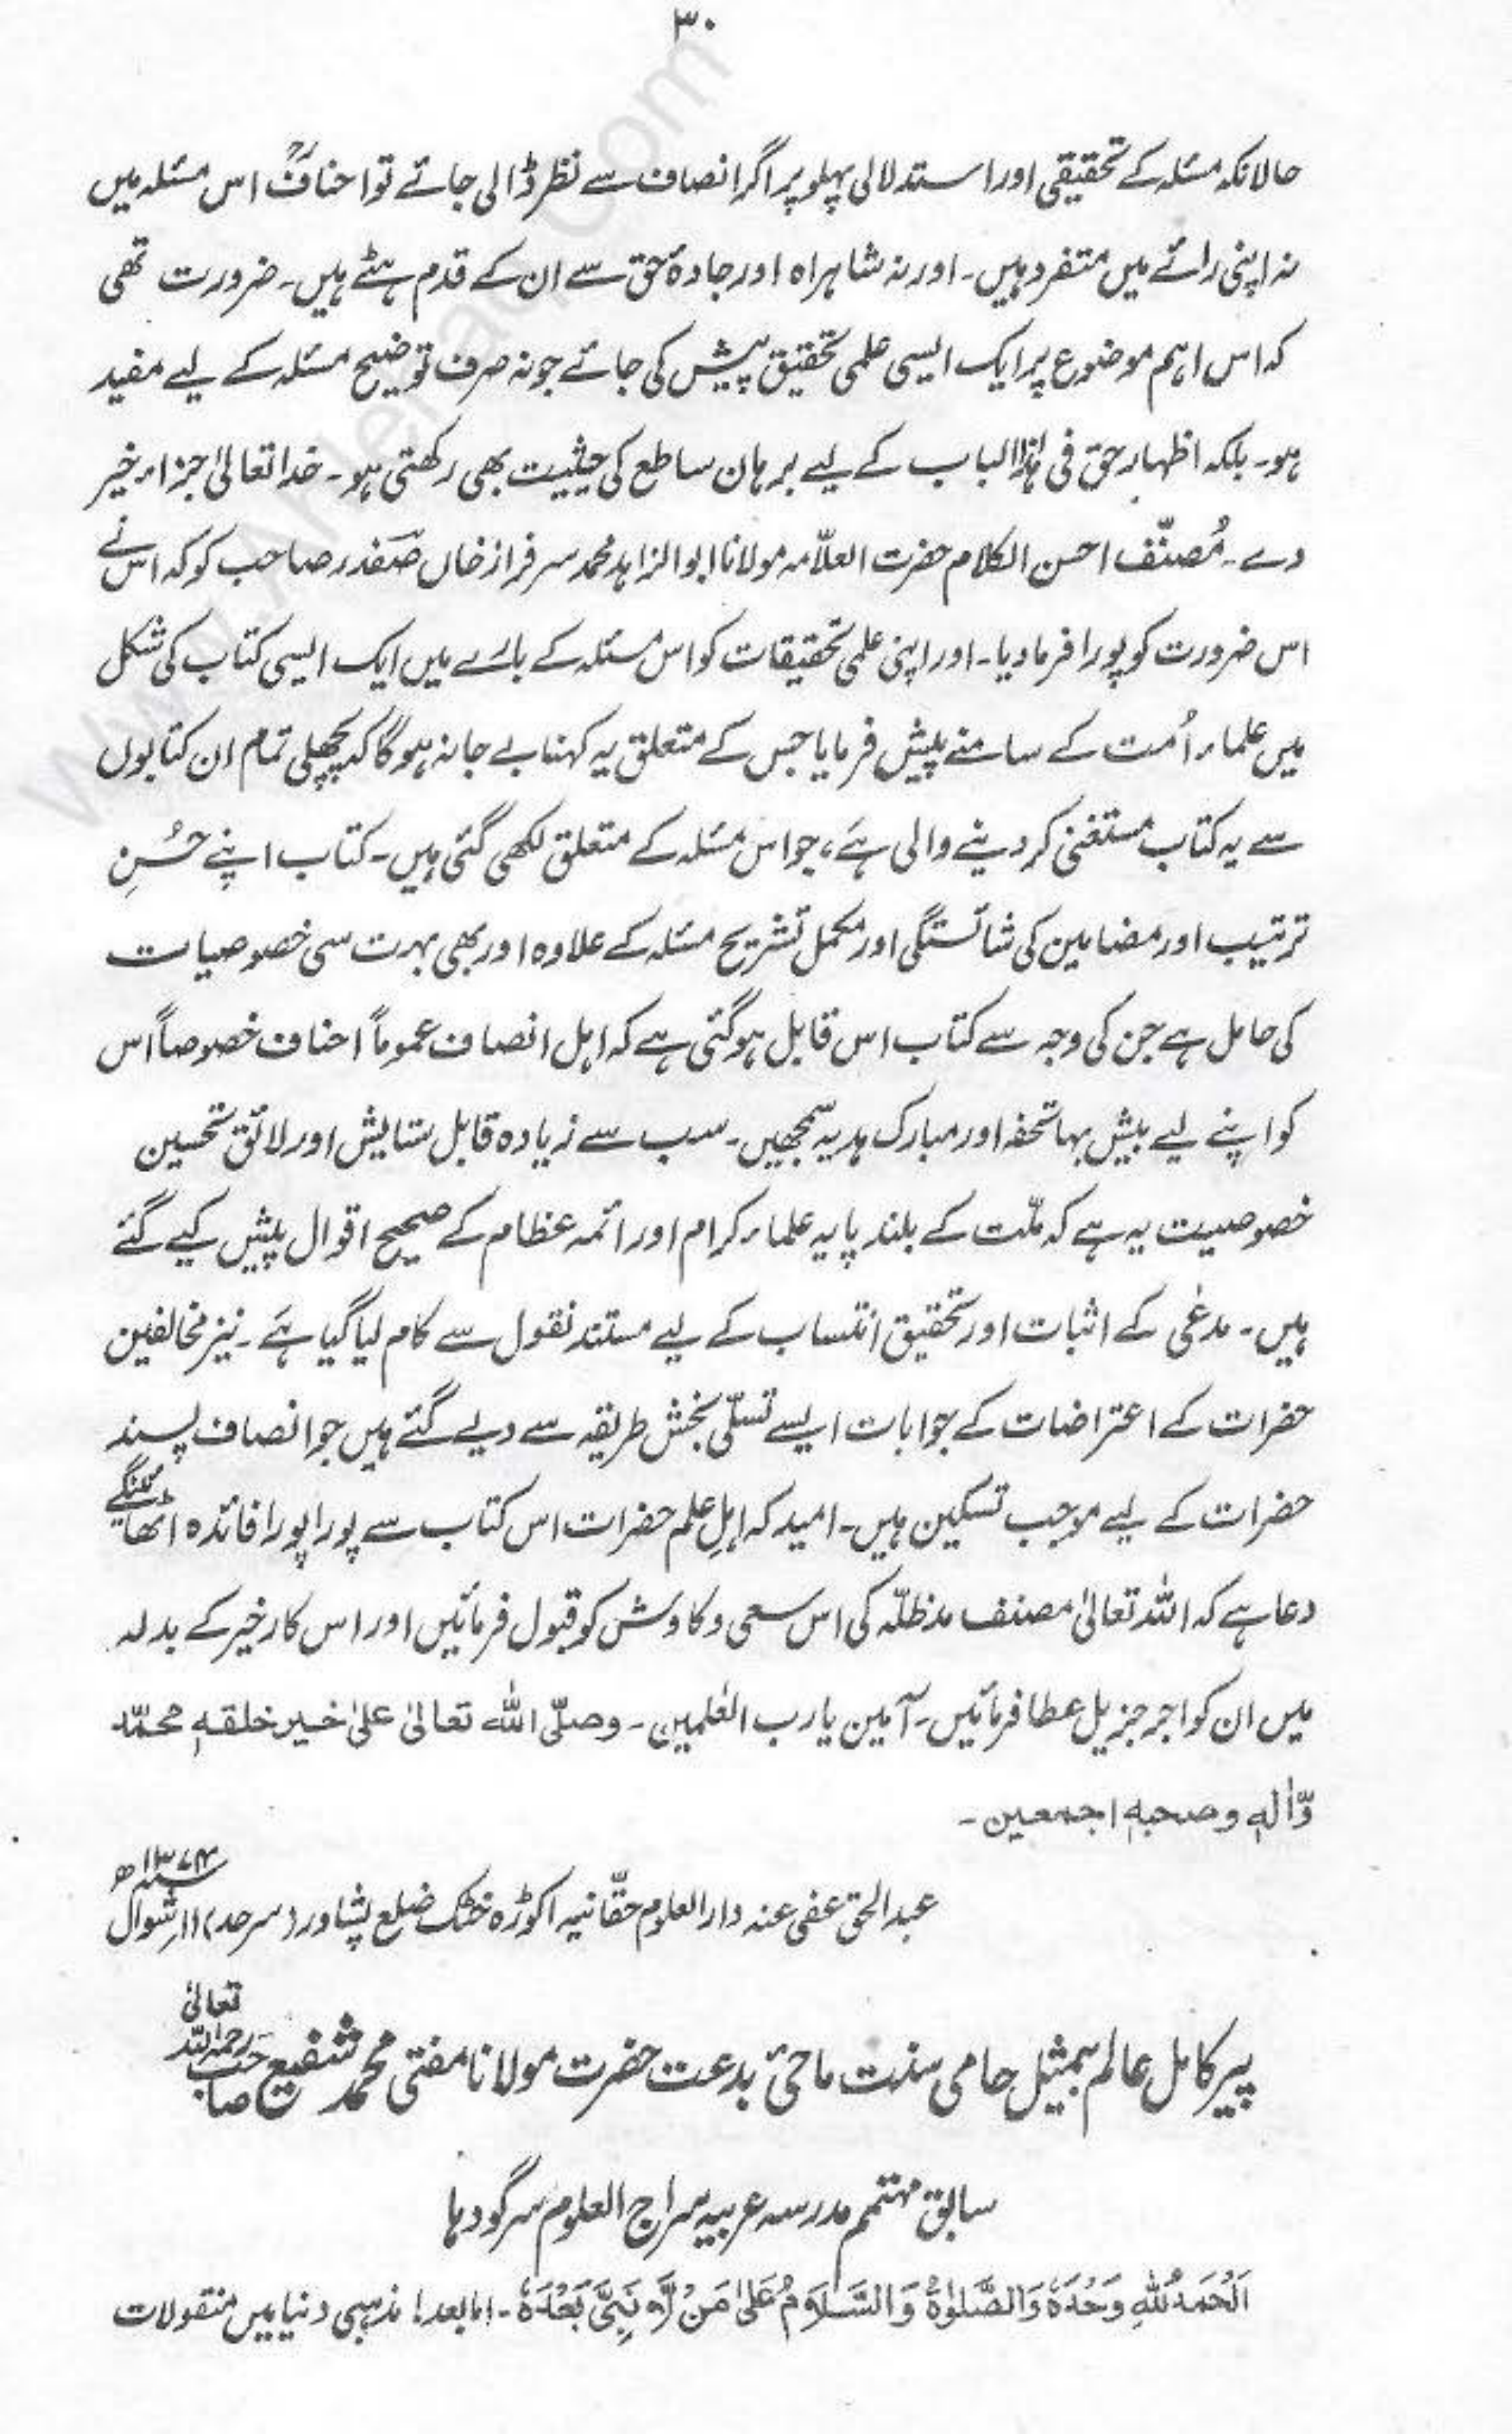 ۳۰
حالانکہ مسئلہ کے تحقیقی اور استدلالی پہلو پر اگر انصاف سے نظر ڈالی جائے تو احنافؒ اس مسئلہ میں
نہ اپنی رائے میں متفرد ہیں۔ اور نہ شاہراہ اور جادۂ حق سے ان کے قدم ہٹے ہیں۔ ضرورت تھی
کہ اس اہم موضوع پر ایک ایسی علمی تحقیق پیش کی جائے جو نہ صرف توضیح مسئلہ کے لیے مفید
ہو۔ بلکہ اظہار حق فی ہٰذا الباب کے لیے برہان ساطع کی حیثیت بھی رکھتی ہو۔ خدا تعالیٰ جزاء خیر
دے۔ مُصنّف احسن الکلام حضرت العلّامہ مولانا ابو الزاہد محمد سرفراز خاں صَفدر صاحب کو کہ اس نے
اس ضرورت کو پورا فرما دیا۔ اور اپنی علمی تحقیقات کو اس مسئلہ کے بارے میں ایک ایسی کتاب کی شکل
میں علماء اُمت کے سامنے پیش فرمایا جس کے متعلق یہ کہنا بے جا نہ ہو گا کہ پچھلی تمام ان کتابوں
سے یہ کتاب مستغنی کر دینے والی ہے، جو اس مسئلہ کے متعلق لکھی گئی ہیں۔ کتاب اپنے حُسنِ
ترتیب اور مضامین کی شائستگی اور مکمل تشریح مسئلہ کے علاوہ اور بھی بہت سی خصوصیات
کی حامل ہے جن کی وجہ سے کتاب اس قابل ہو گئی ہے کہ اہل انصاف عموماً احناف خصوصاً اس
کو اپنے لیے بیش بہا تحفہ اور مبارک ہدیہ سمجھیں۔ سب سے زیادہ قابل ستایش اور لائق تحسین
خصوصیت یہ ہے کہ ملّت کے بلند پایہ علماء کرام اور ائمہ عظام کے صحیح اقوال پیش کیے گئے
ہیں۔ مدعٰی کے اثبات اور تحقیق انتساب کے لیے مستند نقول سے کام لیا گیا ہے۔ نیز مخالفین
حضرات کے اعتراضات کے جوابات ایسے تسلّی بخش طریقہ سے دیے گئے ہیں جو انصاف پسند
حضرات کے لیے موجب تسکین ہیں۔ امید کہ اہلِ علم حضرات اس کتاب سے پورا پورا فائدہ اٹھائینگے
دعا ہے کہ اللہ تعالیٰ مصنف مدظلّہ کی اس سعی و کاوش کو قبول فرمائیں اور اس کار خیر کے بدلہ
میں ان کو اجر جزیل عطا فرمائیں۔ آمین یا رب العٰلمین۔ وصلّی اللہ تعالیٰ علیٰ خیر خلقہٖ محمّد
وّاٰلہٖ وصحبہٖ اجمعین۔
عبدالحق عفی عنہ دارالعلوم حقّانیہ اکوڑہ خٹک ضلع پشاور (سرحد) ۱۱؍ شوال ۱۳۷۴ھ
پیر کامل عالم بمیثل حامی سنت ماحئ بدعت حضرت مولانا مفتی محمد شفیع صاحب رحمہ اللہ تعالیٰ
سابق مہتمم مدرسہ عربیہ سراج العلوم سرگودہا
اَلْحَمْدُ لِلّٰہِ وَحْدَہٗ وَالصَّلٰوۃُ وَالسَّلَامُ عَلیٰ مَنْ لَّا نَبِیَّ بَعْدَہٗ۔ اما بعد! مذہبی دنیا میں منقولات